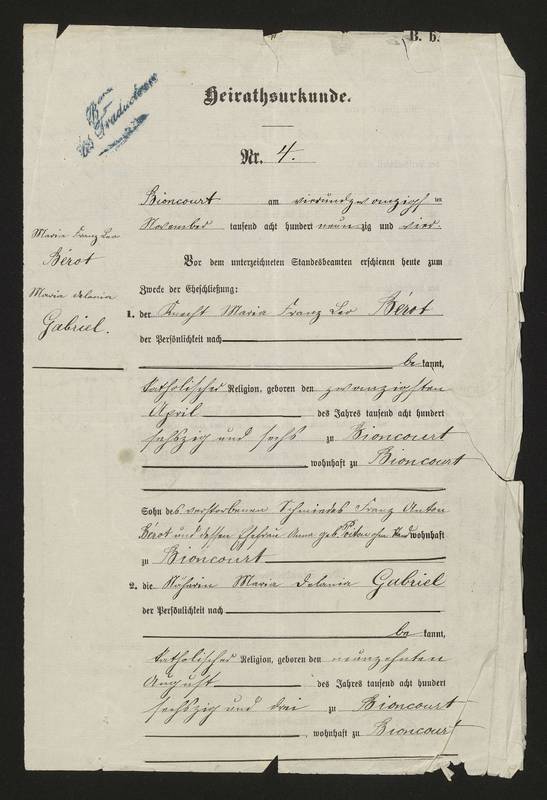 B. b.
Bau
des Traducteurs
Heirathsurkunde.
Nr. 4.
Bioncourt am vierundzwanzigsten
November tausend acht hundert neunzig und vier.
Maria Franz Leo
Bérot
Maria Delania
Gabriel.
Vor dem unterzeichneten Standesbeamten erschienen heute zum
Zwecke der Eheschließung:
1. der Knecht Maria Franz Leo Bérot
der Persönlichkeit nach
bekannt,
katholischer Religion, geboren den zwanzigsten
April des Jahres tausend acht hundert
sechszig und sechs zu Bioncourt
, wohnhaft zu Bioncourt
Sohn des verstorbenen Schmiedes Franz Anton
Bérot und dessen Ehefrau Anna geb. ohne Stand wohnhaft
zu Bioncourt
2. die Näherin Maria Delania Gabriel
der Persönlichkeit nach
bekannt,
katholischer Religion, geboren den neunzehnten
August des Jahres tausend acht hundert
sechszig und drei zu Bioncourt
, wohnhaft zu Bioncourt